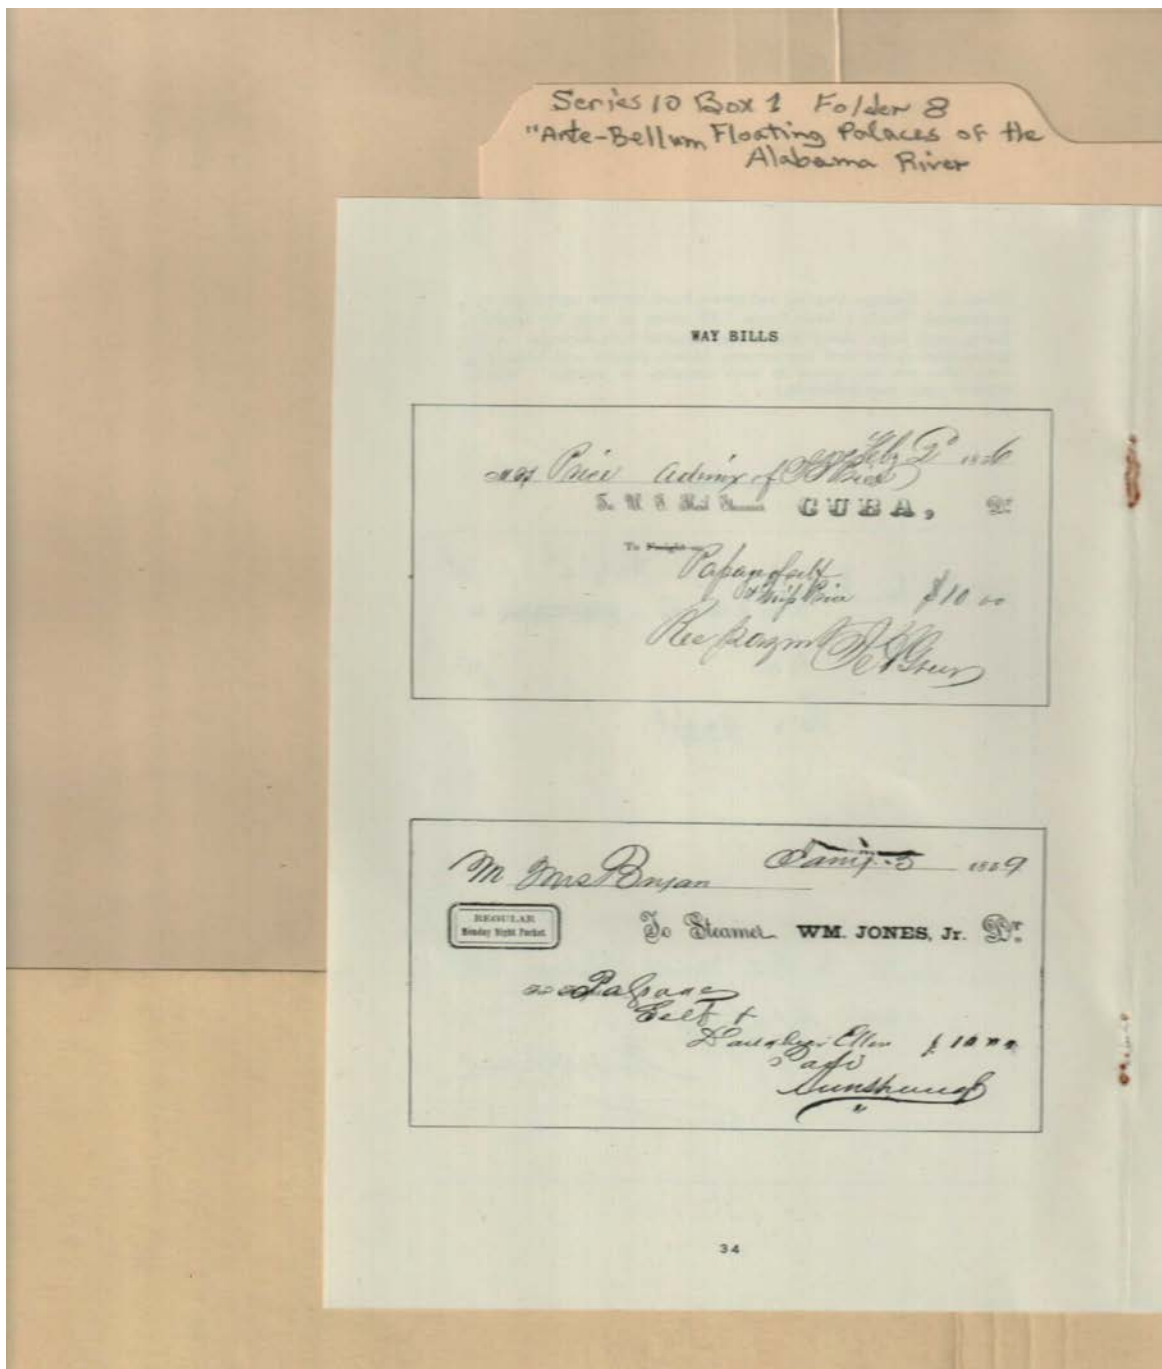 Series 10 Box 1 Folder 8
"Ante-Bellum Floating Palaces of the
Alabama River
WAY BILLS
Feby 2d 1856
Mrs Price Admix of
To U. S. Mail Steamer CUBA, Dr
To Freight on
Passage self
& Miss Price $10 00
Rec paymt Green
M Mrs Bryan Jany. 5 1859
REGULAR
Monday Night Packet.
To Steamer WM. JONES, Jr. Dr.
Passage
Self &
Daughter Ellen $ 10 00
Paid
34